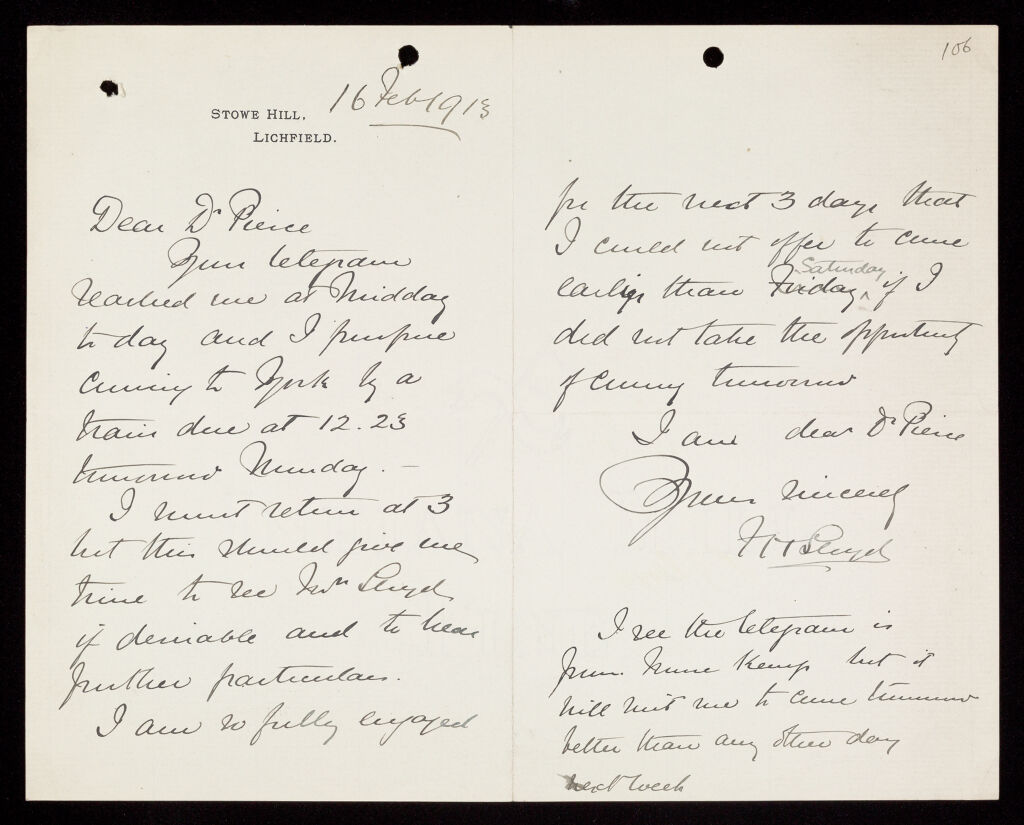 106
16 Feb 1913
STOWE HILL,
LICHFIELD.
Dear Dr Pierce
Your telegram
reached me at Midday
to day and I propose
coming to York by a
train due at 12.23
tomorrow Monday. –
I must return at 3
but this should give me
time to see Mrs Lloyd
if desirable and to hear
further particulars.
I am so fully engaged
for the next 3 days that
I could not offer to come
earlier than Friday Saturday if I
did not take the opportunity
of coming tomorrow
I am dear Dr Pierce
Yours sincerely
Lloyd
I see the telegram is
from Nurse Kemp but it
will suit me to come tomorrow
better than any other day
next week